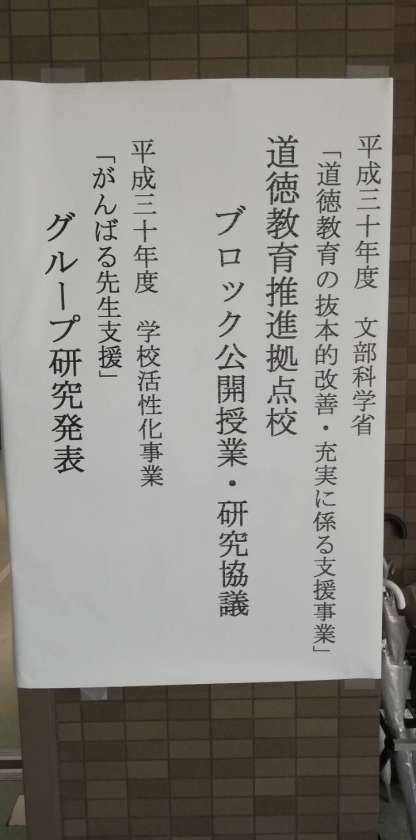 平成三十年度　文部科学省
「道徳教育の抜本的改善・充実に係る支援事業」
道徳教育推進拠点校
ブロック公開授業・研究協議
平成三十年度　学校活性化事業
「がんばる先生支援」
グループ研究発表